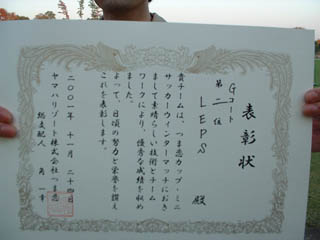 表彰状
Gコート
第二位
LEPS 殿
貴チームは、つま恋カップ・ミニ
サッカーウィンターマッチにおき
まして素晴らしい技術とチーム
ワークにより、優秀な成績を収め
ました。
よって、日頃の努力と栄誉を讃え
これを表彰します。
二〇〇一年十一月二十四日
ヤマハリゾート株式会社つま恋
総支配人 角 一幸